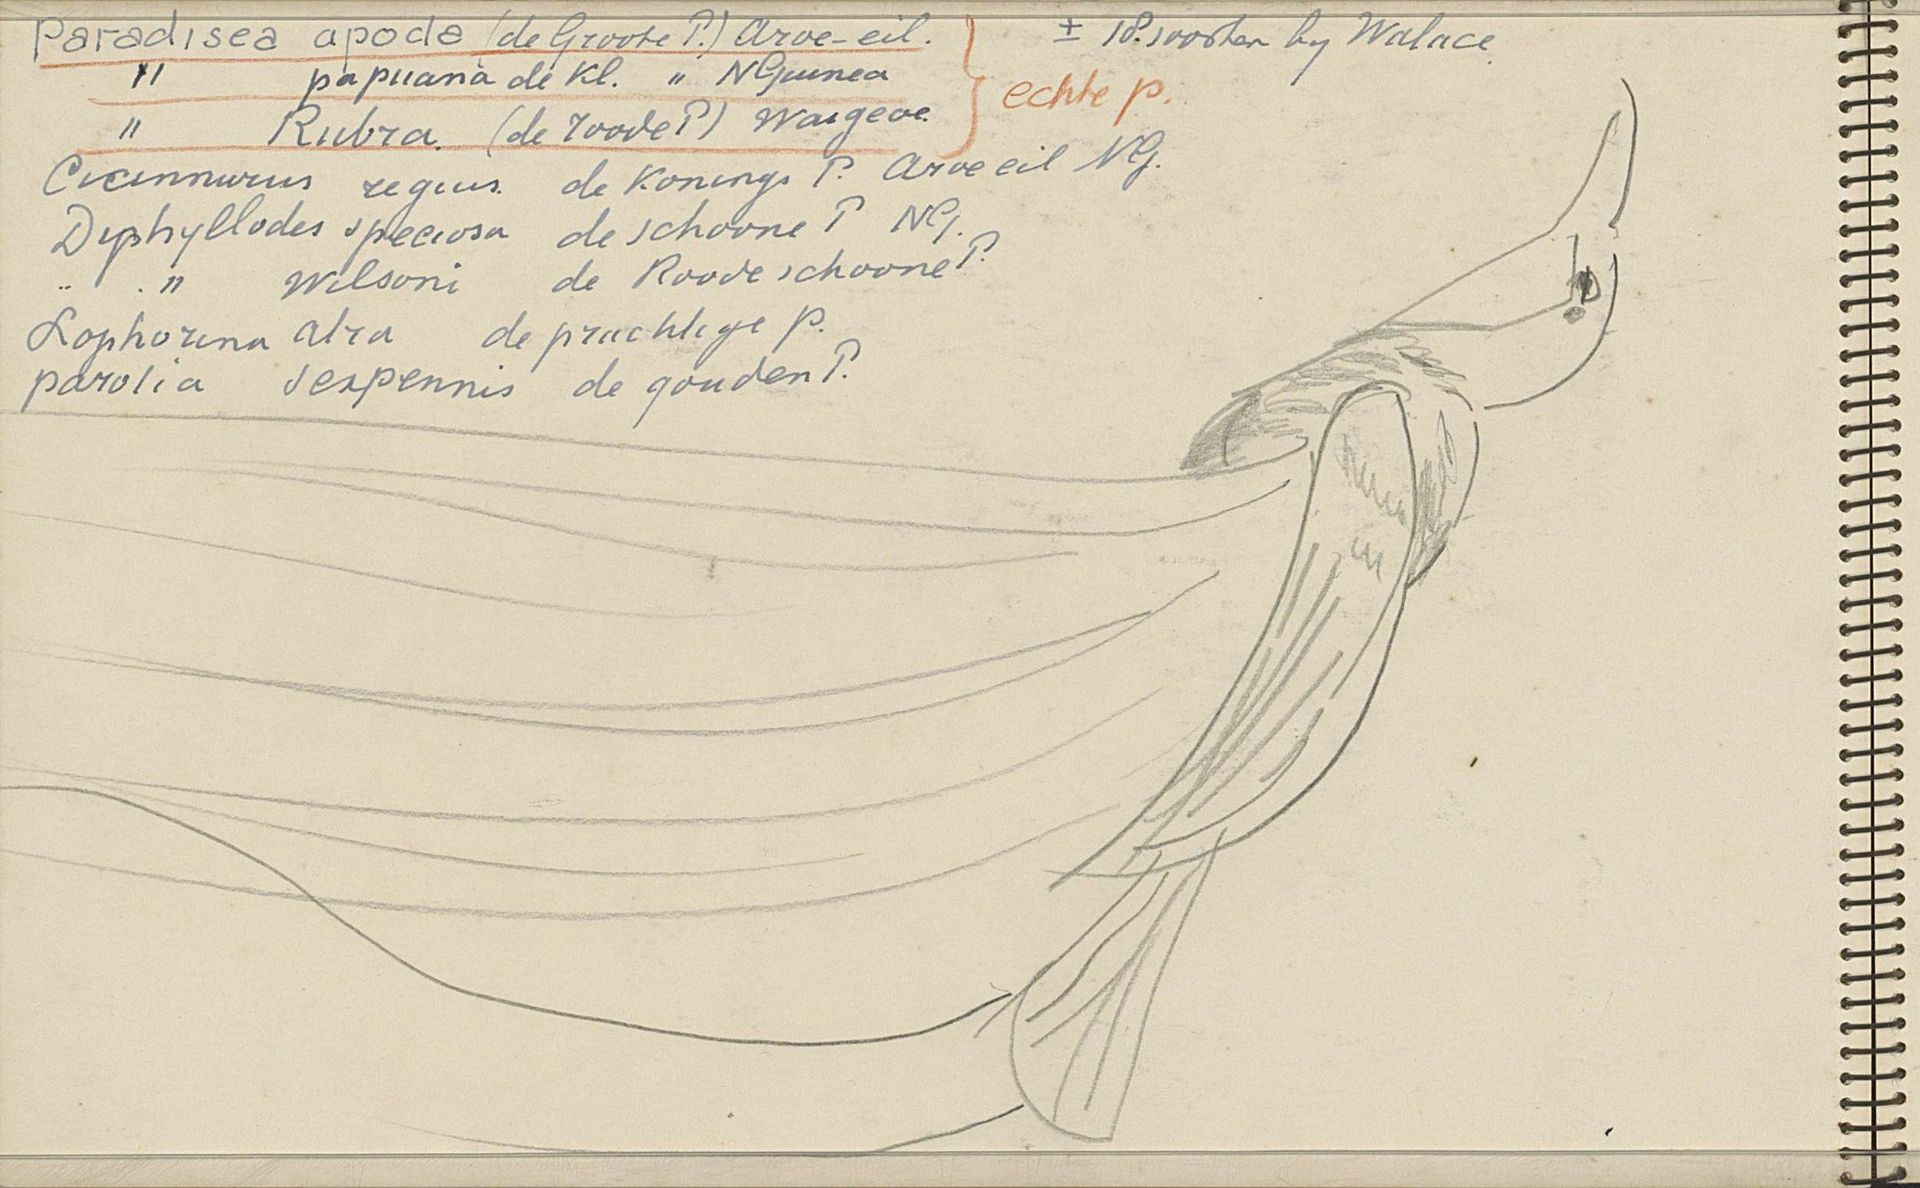 Paradisea apoda (de Groote P.) Aroe-eil. ± 18 soorten by Walace
" papuana de Kl. " NGuinea
echte p.
" Rubra. (de roode P) Waigeoe.
Cicinnurus regius. de Konings P. Aroe eil NG.
Diphyllodes speciosa de schoone P NG.
" " Wilsoni de Roode schoone P.
Lophorina atra de prachtige p.
parotia sexpennis de gouden P.